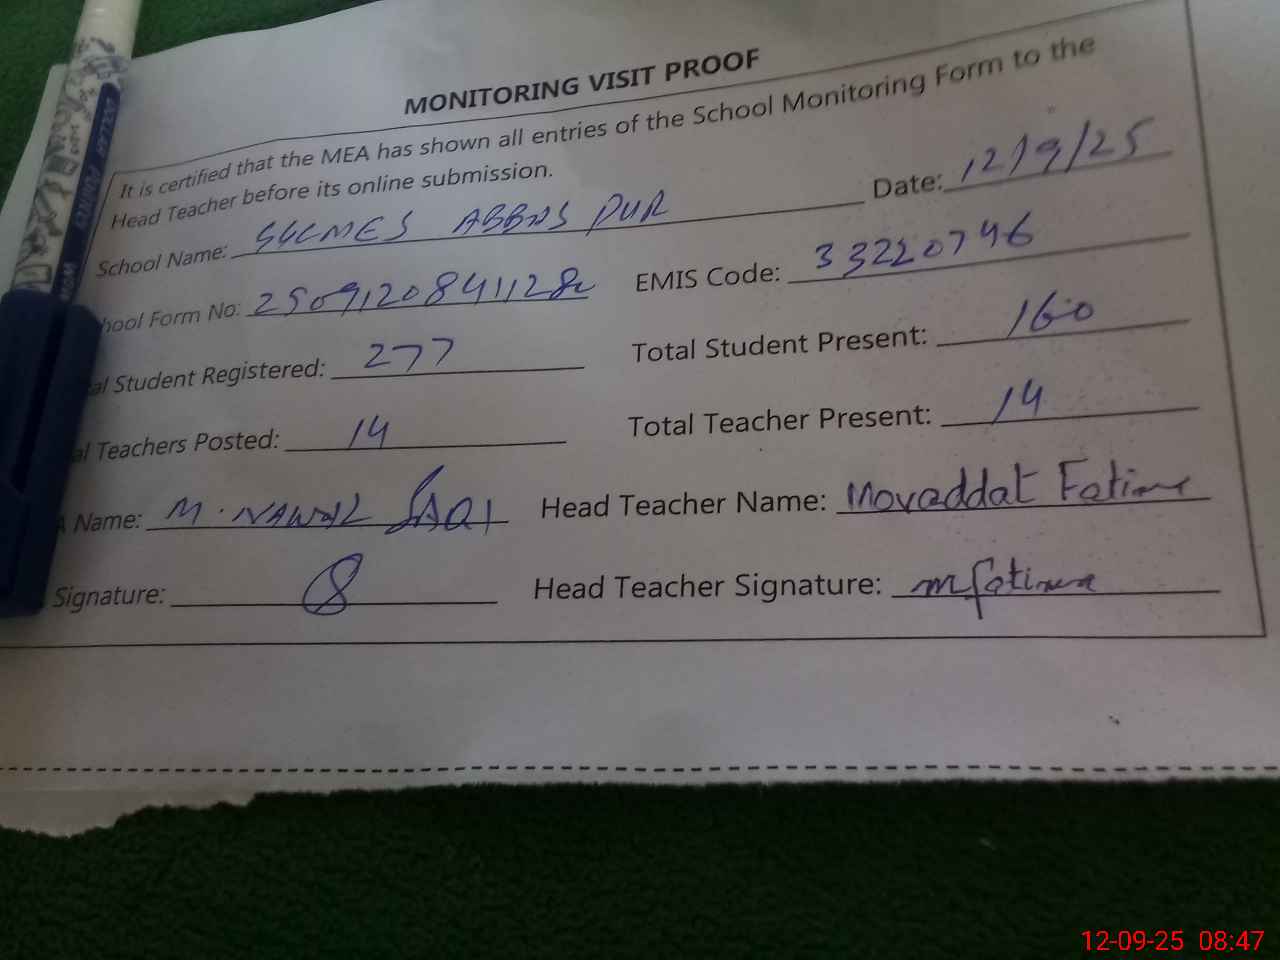 MONITORING VISIT PROOF
It is certified that the MEA has shown all entries of the School Monitoring Form to the
Head Teacher before its online submission.
Date: 12/9/25
School Name: ABBAS PUR
hool Form No: EMIS Code: 33220746
al Student Registered: 277 Total Student Present: 160
al Teachers Posted: 14 Total Teacher Present: 14
A Name: M. NAWAZ SAQI Head Teacher Name: Movaddat Fatima
Signature: Head Teacher Signature: mfatima
12-09-25 08:47